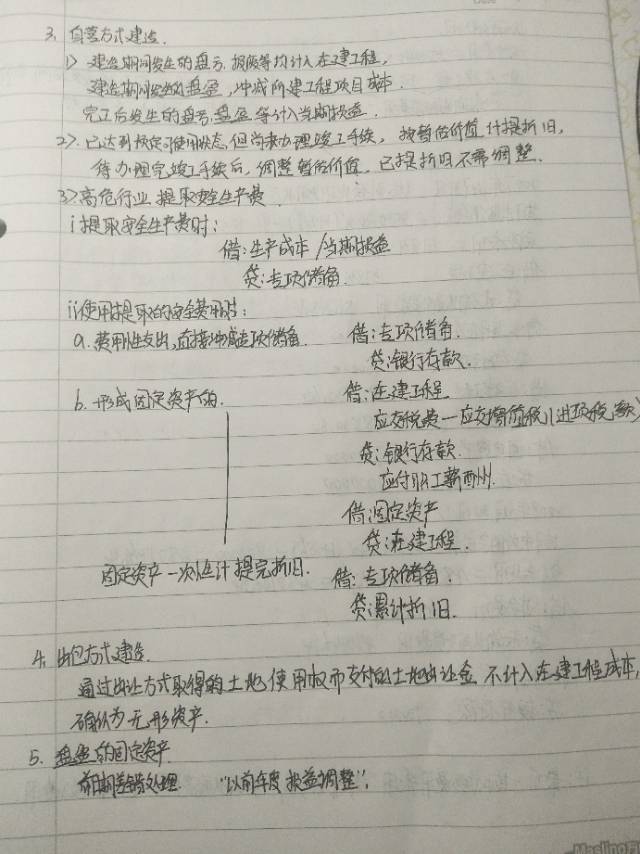 3. 自营方式建造.
1> 建造期间发生的盘亏、报废等均计入在建工程,
建造期间发生的盘盈, 冲减所建工程项目成本.
完工后发生的盘亏、盘盈等计入当期损益.
2>. 已达到预定可使用状态,但尚未办理竣工手续, 按暂估价值计提折旧,
待办理完竣工手续后, 调整暂估价值, 已提折旧不需调整.
3>高危行业提取安全生产费.
i 提取安全生产费时:
借:生产成本/当期损益
贷:专项储备.
ii使用提取的安全费用时:
a. 费用性支出,直接冲减专项储备. 借:专项储备.
贷:银行存款.
b. 形成固定资产的. 借:在建工程
应交税费—应交增值税(进项税额)
贷:银行存款.
应付职工薪酬.
借:固定资产
贷:在建工程.
固定资产一次性计提完折旧. 借:专项储备.
贷:累计折旧.
4. 出包方式建造.
通过出让方式取得的土地使用权而支付的土地出让金不计入在建工程成本,
确认为无形资产.
5. 盘盈的固定资产
前期差错处理. “以前年度损益调整”;
Masling